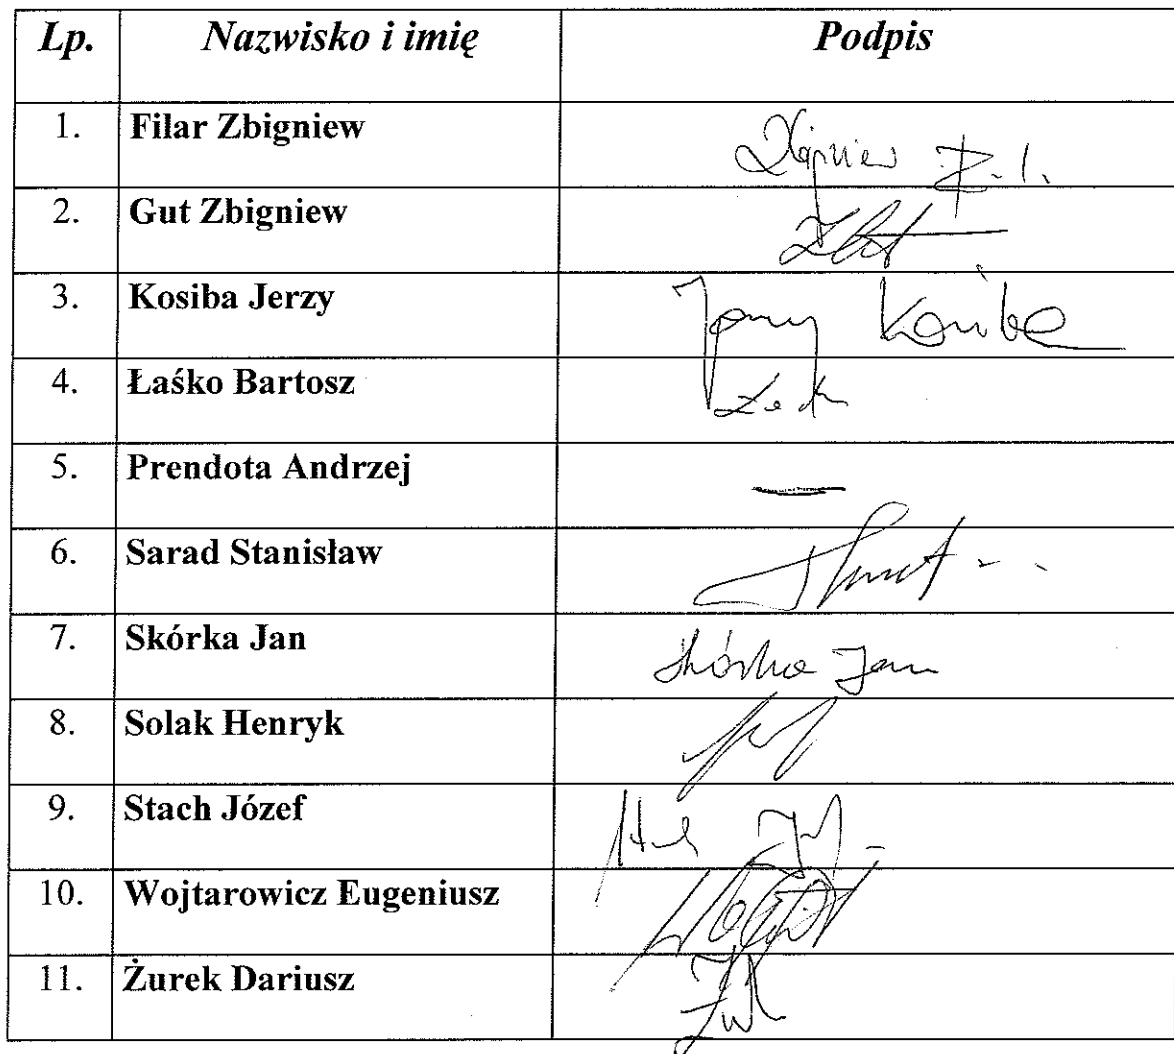 Lp. Nazwisko i imię Podpis
1. Filar Zbigniew Zbigniew
2. Gut Zbigniew
3. Kosiba Jerzy Jerzy Kosiba
4. Łaśko Bartosz
5. Prendota Andrzej —
6. Sarad Stanisław
7. Skórka Jan Skórka Jan
8. Solak Henryk
9. Stach Józef
10. Wojtarowicz Eugeniusz
11. Żurek Dariusz